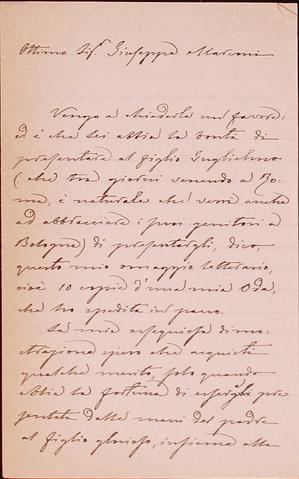 Ottimo Sig. Giuseppe Marconi
Vengo a chiederle un favore:
ed è che Lei abbia la bontà di
presentare al figlio Guglielmo
(che tra giorni venendo a Ro-
ma, è naturale che verrà anche
ad abbracciare i suoi genitori a
Bologna) di presentargli, dico,
questo mio omaggio letterario,
cioè 10 copie d'una mia Oda,
che ho spedita in pacco.
La mia ossequiosa dimo-
strazione spero che acquisti
qualche merito, solo quando
abbia la fortuna di essergli pre-
sentata dalle mani del padre
al figlio glorioso, insieme alla